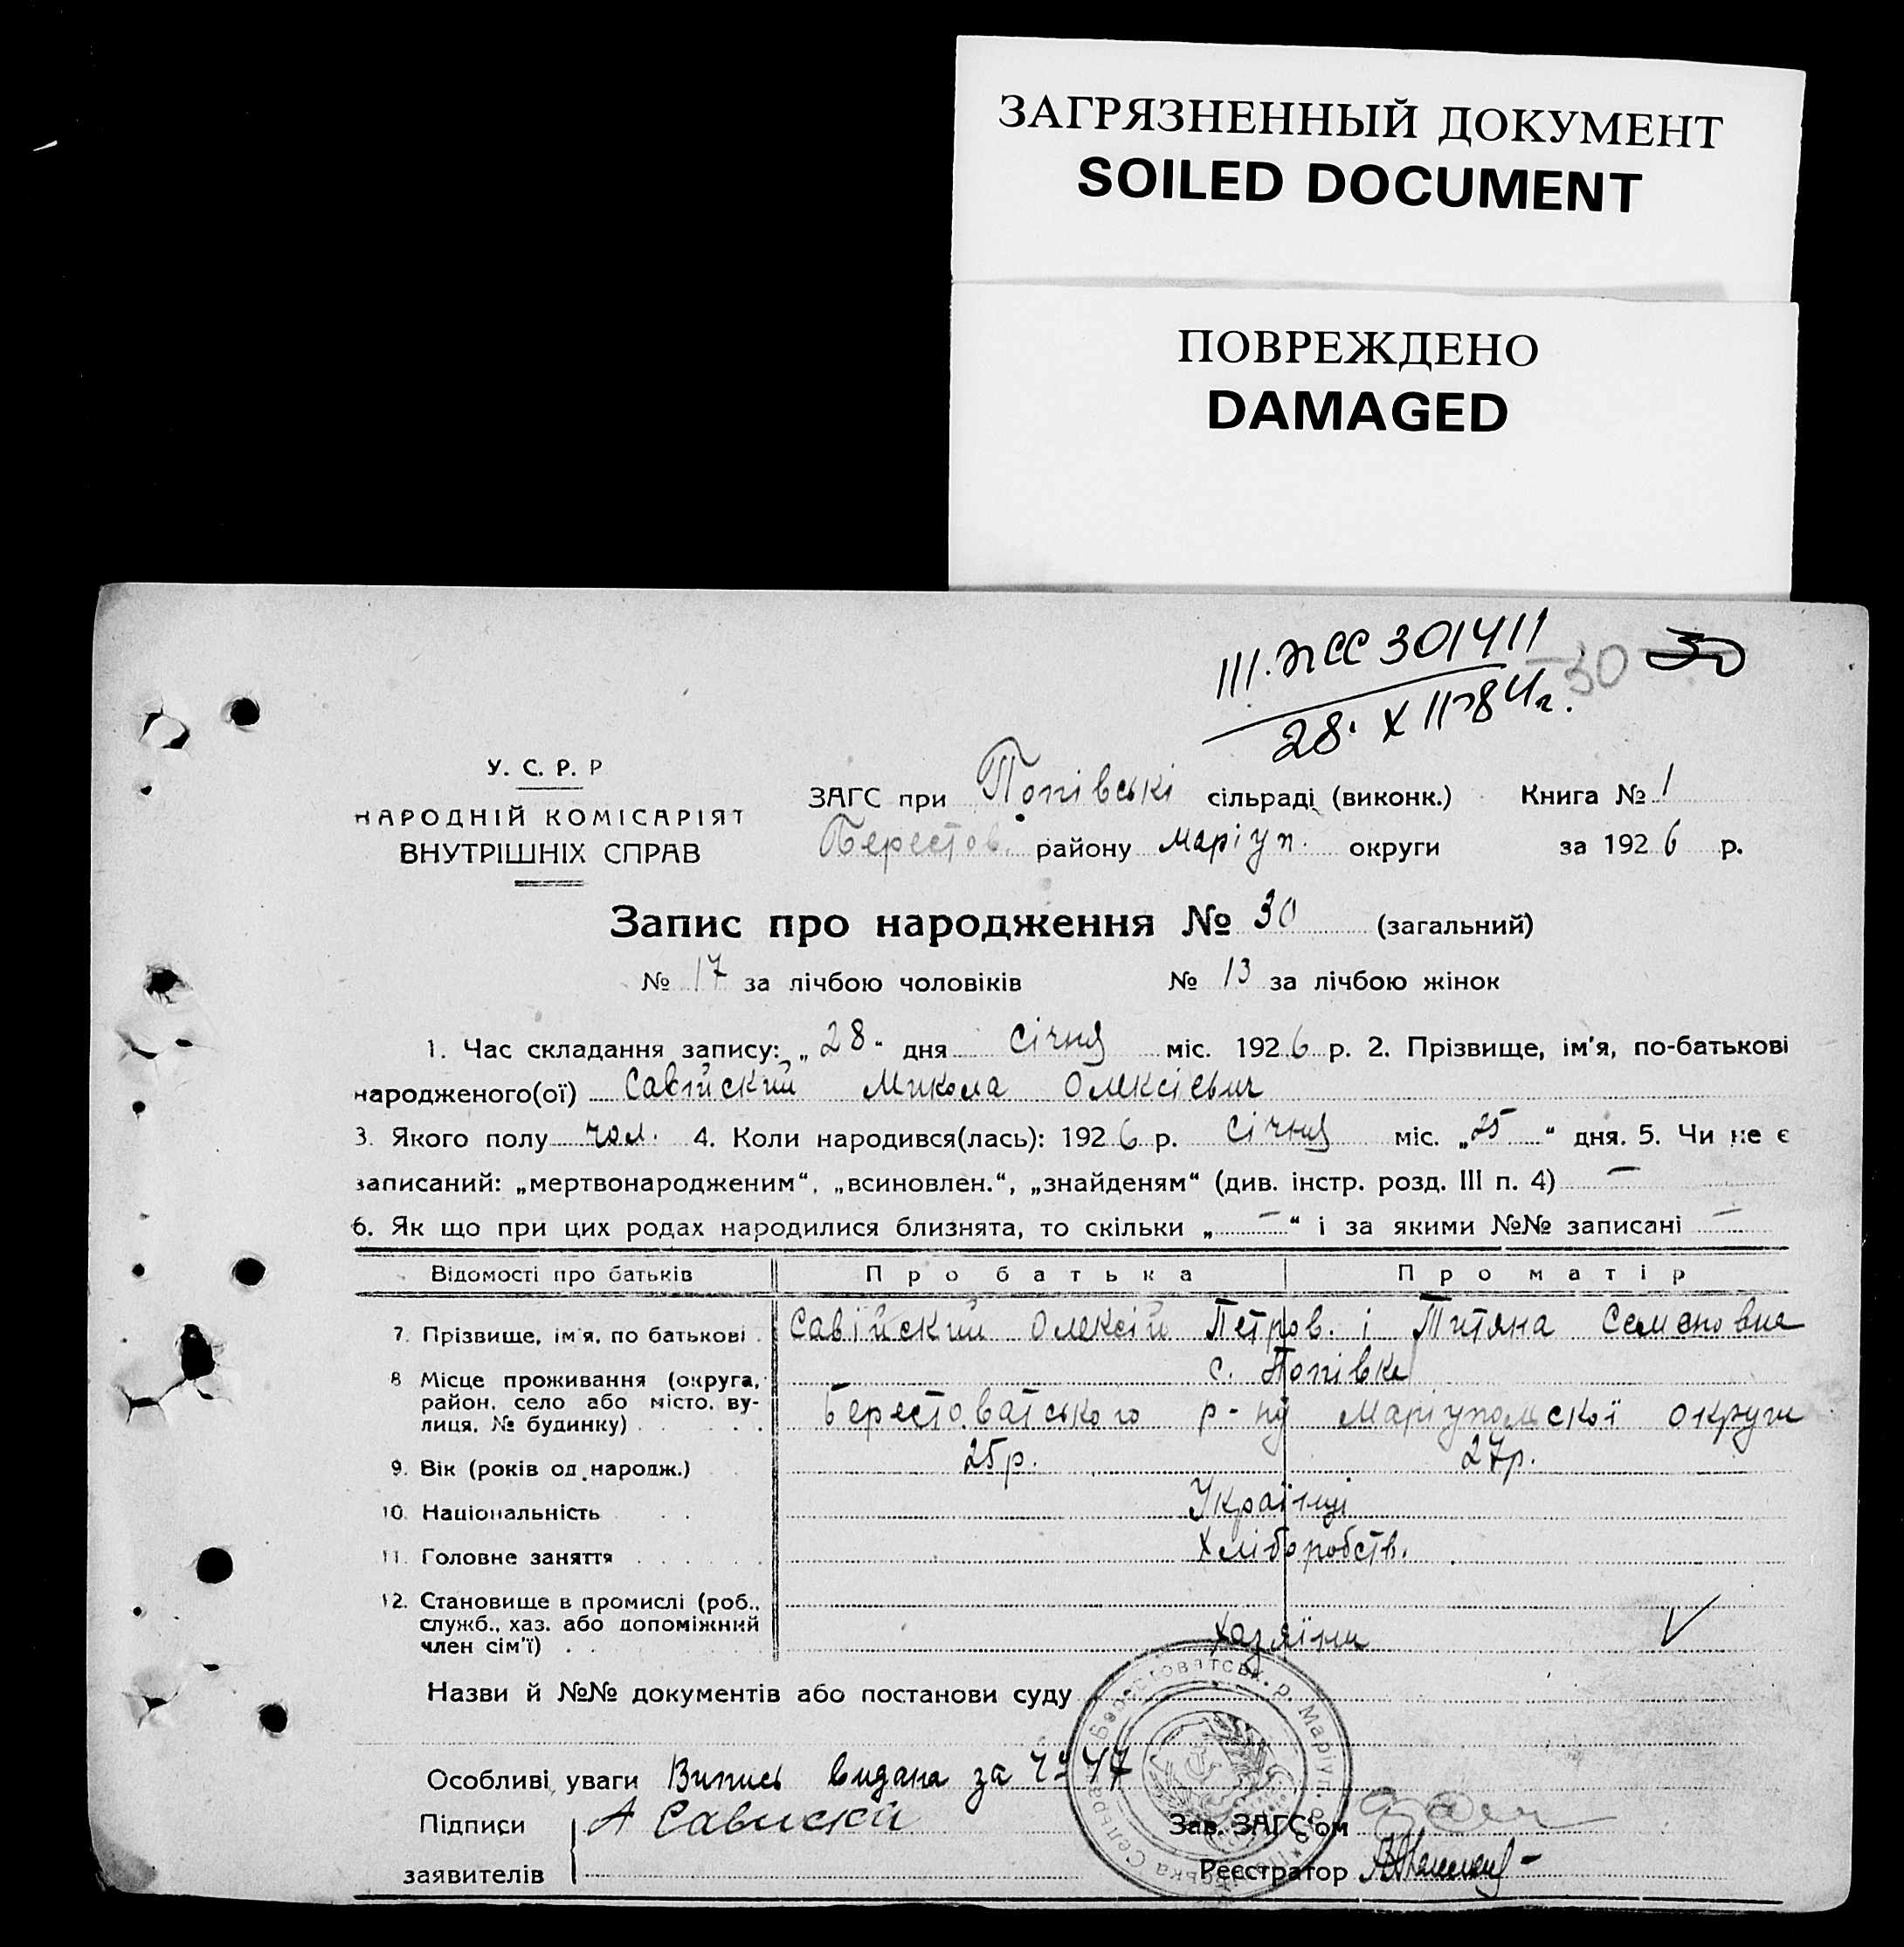 ЗАГРЯЗНЕННЫЙ ДОКУМЕНТ
SOILED DOCUMENT
ПОВРЕЖДЕНО
DAMAGED
301411
30 30
28. X
У. С. Р. Р
НАРОДНІЙ КОМІСАРІЯТ
ВНУТРІШНІХ СПРАВ
ЗАГС при Попівські сільраді (виконк.) Книга № 1
Берестов. району Маріуп. округи за 1926 р.
Запис про народження № 30 (загальний)
№ 17 за лічбою чоловіків № 13 за лічбою жінок
1. Час складання запису: „28" дня Січня міс. 1926 р. 2. Прізвище, ім'я, по-батькові
народженого(ої) Савійский Микола Олексієвич
3. Якого полу чол. 4. Коли народився(лась): 1926 р. Січня міс. „25" дня. 5. Чи не є
записаний: „мертвонародженим", „всиновлен.", „знайденям" (див. інстр. розд. III п. 4) —
6. Як що при цих родах народилися близнята, то скільки „—" і за якими №№ записані —
Відомості про батьків Про батька Про матір
7. Прізвище, ім'я, по батькові Савійский Олексій Петров. і Титяна Семеновна
8 Місце проживання (округа, с. Попівка
район, село або місто, ву-
лиця, № будинку) Берестоватського р-ну Маріупольскої округи
9. Вік (років од народж.) 25р. 27р.
10. Національність Українці
11. Головне заняття Хліборобств.
12. Становище в промислі (роб.,
служб., хаз. або допоміжний
член сім'ї) Хазяїни
Назви й №№ документів або постанови суду
Особливі уваги Випись видана за № 47
Підписи А Савиский Зав. ЗАГС'ом
заявителів Реєстратор
Берестоватськ. р. Маріуп. ок.